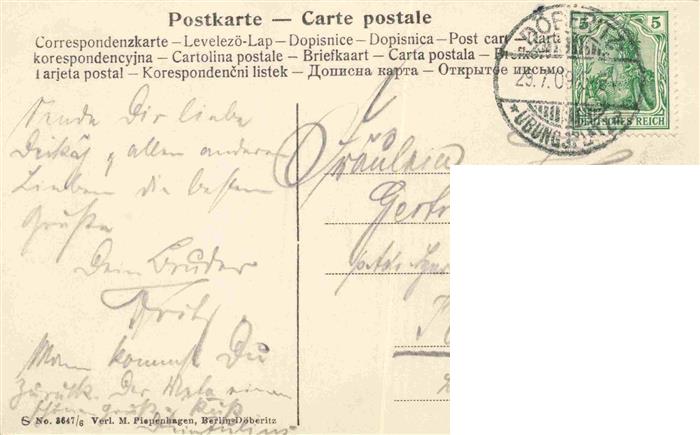 Postkarte — Carte postale
Correspondenzkarte – Levelezö-Lap – Dopisnice – Dopisnica – Post card – Karta
korespondencyjna – Cartolina postale – Briefkaart – Carta postala –
Tarjeta postal – Korespondenční listek – Дописна карта – Открытое письмо
DÖBERITZ
29.7.09
ÜBUNGSPLATZ
5 5
DEUTSCHES REICH
Sende Dir liebe
allen anderen
Lieben die besten
Grüße
Dein Bruder
Fritz
Wann kommst Du
zurück. Der Mela einen
schönen Gruß & Kuß
Fräulein
S No. 3647/6 Verl. M. Piepenhagen, Berlin-Döberitz